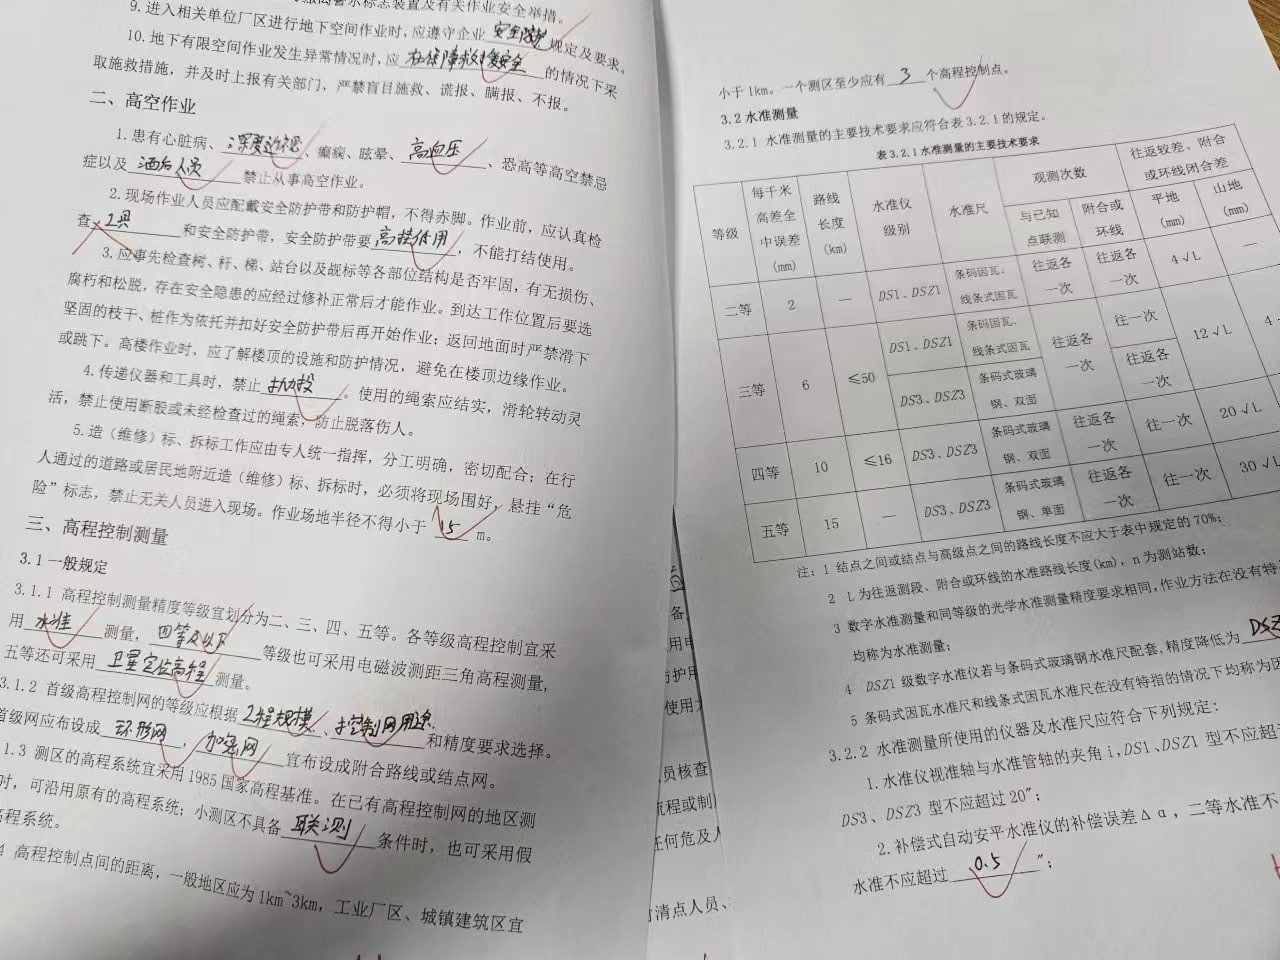 9.进入相关单位厂区进行地下空间作业时,应遵守企业 安全防护 规定及要求。
10.地下有限空间作业发生异常情况时,应 在保障救援安全 的情况下采
取施救措施，并及时上报有关部门，严禁盲目施救、谎报、瞒报、不报。
二、高空作业
1.患有心脏病、深度近视、癫痫、眩晕、高血压、恐高等高空禁忌
症以及 酒后人员 禁止从事高空作业。
2.现场作业人员应配戴安全防护带和防护帽，不得赤脚。作业前，应认真检
查 工具 和安全防护带，安全防护带要 高挂低用 ，不能打结使用。
3.应事先检查树、杆、梯、站台以及觇标等各部位结构是否牢固，有无损伤、
腐朽和松脱，存在安全隐患的应经过修补正常后才能作业。到达工作位置后要选
坚固的枝干、桩作为依托并扣好安全防护带后再开始作业；返回地面时严禁滑下
或跳下。高楼作业时，应了解楼顶的设施和防护情况，避免在楼顶边缘作业。
4.传递仪器和工具时，禁止 抛投 。使用的绳索应结实，滑轮转动灵
活，禁止使用断股或未经检查过的绳索，防止脱落伤人。
5.造（维修）标、拆标工作应由专人统一指挥，分工明确，密切配合；在行
人通过的道路或居民地附近造（维修）标、拆标时，必须将现场围好，悬挂“危
险”标志，禁止无关人员进入现场。作业场地半径不得小于 15 m。
三、高程控制测量
3.1 一般规定
3.1.1 高程控制测量精度等级宜划分为二、三、四、五等。各等级高程控制宜采
用 水准 测量， 四等及以下 等级也可采用电磁波测距三角高程测量，
五等还可采用 卫星定位高程 测量。
3.1.2 首级高程控制网的等级应根据 工程规模 、控制网用途 和精度要求选择。
首级网应布设成 环形网 ， 加密网 宜布设成附合路线或结点网。
1.3 测区的高程系统宜采用1985国家高程基准。在已有高程控制网的地区测
时，可沿用原有的高程系统；小测区不具备 联测 条件时，也可采用假
高程系统。
4 高程控制点间的距离，一般地区应为1km~3km，工业厂区、城镇建筑区宜
小于1km。一个测区至少应有 3 个高程控制点。
3.2 水准测量
3.2.1 水准测量的主要技术要求应符合表3.2.1的规定。
表3.2.1水准测量的主要技术要求
等级 每千米高差全中误差(mm) 路线长度(km) 水准仪级别 水准尺 观测次数 往返较差、附合或环线闭合差
与已知点联测 附合或环线 平地(mm) 山地(mm)
二等 2 — DS1、DSZ1 条码因瓦、线条式因瓦 往返各一次 往返各一次 4√L —
三等 6 ≤50 DS1、DSZ1 条码因瓦、线条式因瓦 往返各一次 往一次 12√L 4
DS3、DSZ3 条码式玻璃钢、双面 往返各一次
四等 10 ≤16 DS3、DSZ3 条码式玻璃钢、双面 往返各一次 往一次 20√L
五等 15 — DS3、DSZ3 条码式玻璃钢、单面 往返各一次 往一次 30√L
注：1 结点之间或结点与高级点之间的路线长度不应大于表中规定的70%；
2 L为往返测段、附合或环线的水准路线长度(km)，n为测站数；
3 数字水准测量和同等级的光学水准测量精度要求相同，作业方法在没有特
均称为水准测量；
4 DSZ1级数字水准仪若与条码式玻璃钢水准尺配套，精度降低为 DSZ
5 条码式因瓦水准尺和线条式因瓦水准尺在没有特指的情况下均称为因
3.2.2 水准测量所使用的仪器及水准尺应符合下列规定：
1.水准仪视准轴与水准管轴的夹角i,DS1、DSZ1型不应超
DS3、DSZ3型不应超过20″；
2.补偿式自动安平水准仪的补偿误差Δα，二等水准不
水准不应超过 0.5 ″；
员核查
流程或制
任何危及人
清点人员、